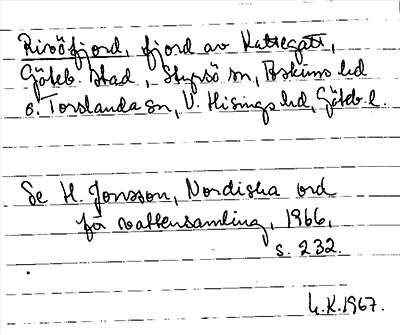 Rivöfjord, fjord av Kattegatt,
Göteb. stad, Styrsö sn, Askims hd
o. Torslanda sn, V. Hisings hd, Göteb. l.
Se H. Jonsson, Nordiska ord
för vattensamling, 1966,
s. 232.
1967.